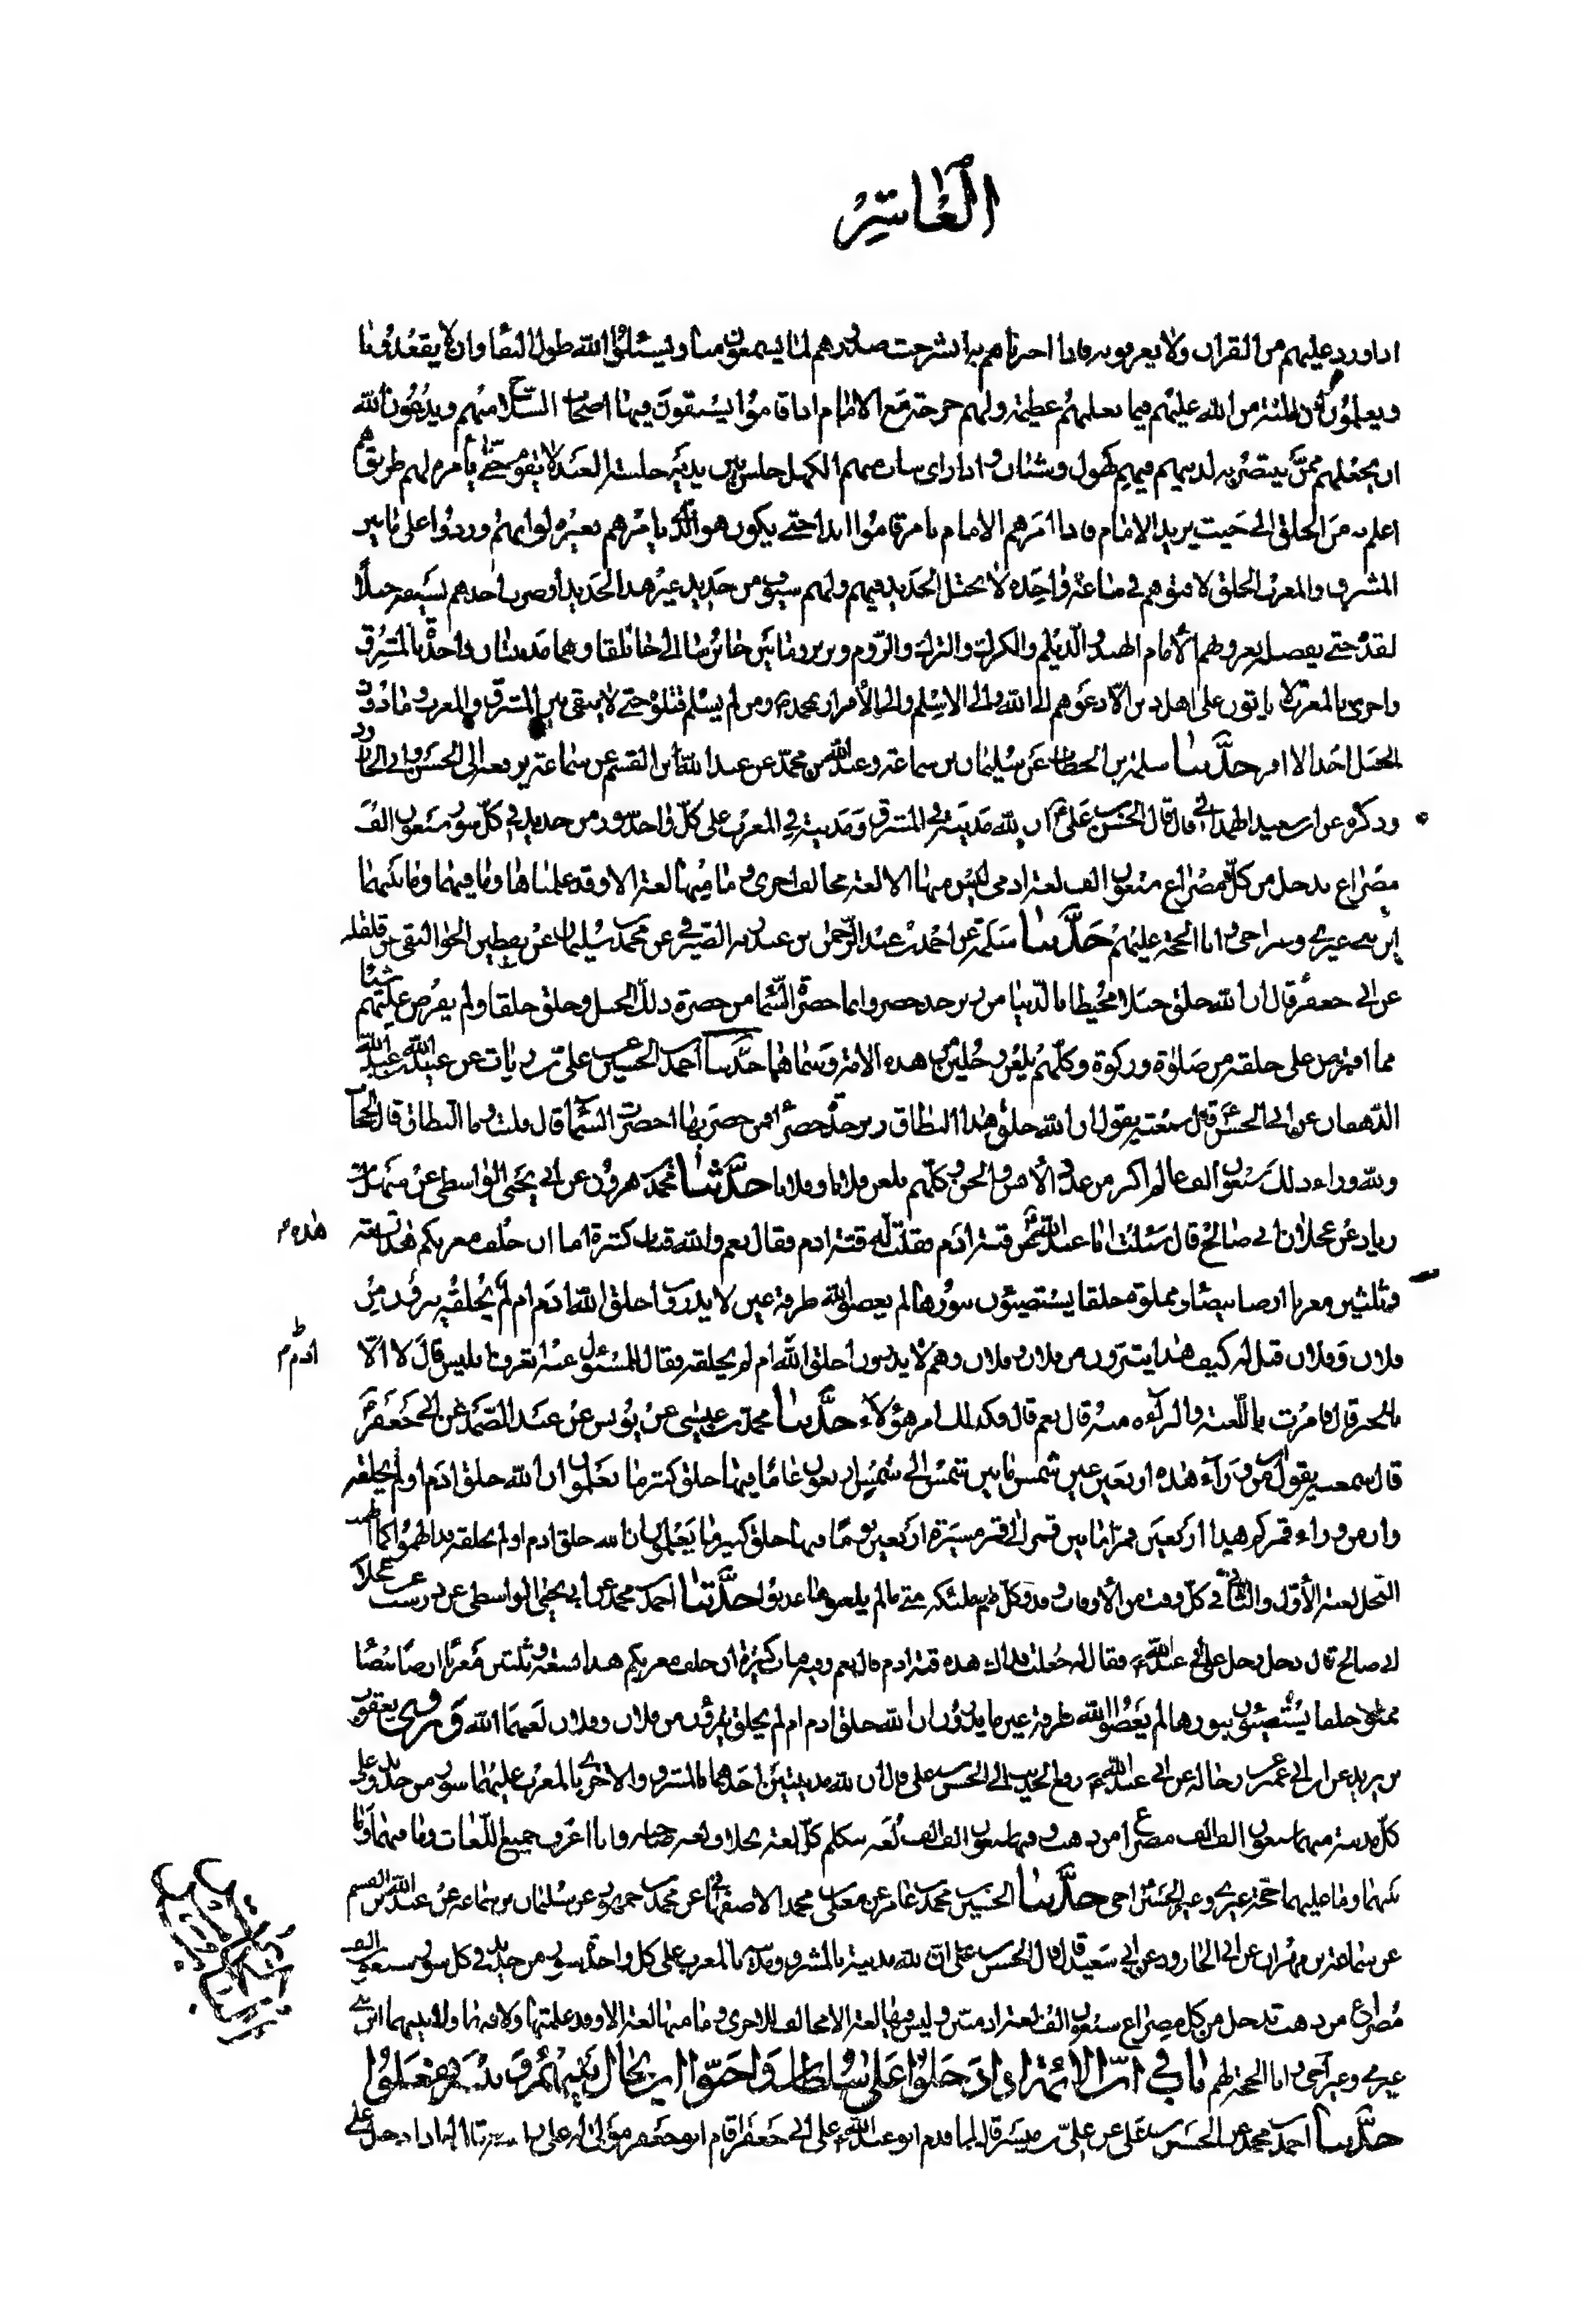 العاشر
اذا ورد عليهم من القران ولا يعرفونه فاذا اخبرناهم به انشرحت صدورهم لما يسمعون منا ويسئلوا الله طول البقا وان لا يفقدونا
ويعلمون ان المنة من الله عليهم فيما نعلمهم عظيمة ولهم خرجة مع الامام اذا قاموا يسبقون فيها اصحاب السلاح منهم ويدعون الله
ان يجعلهم ممن ينتصر به لدينهم فيهم كهول وشبان واذا راى شاب منهم الكهل جلس بين يديه جلسة العبد لا يقوم حتى يأمره لهم طريق هم
اعلم به من الخلق الى حيث يريد الامام فاذا امرهم الامام بامر قاموا ابدا حتى يكون هو الذي يامرهم بغيره لو انهم وردوا على ما بين
المشرق والمغرب من الخلق لافنوهم في ساعة واحدة لا يختل الحديد فيهم ولهم سيوف من حديد غير هذا الحديد لو ضرب احدهم بسيفه جبلا
لقده حتى يفصله يغزو بهم الامام الهند والديلم والكرك والترك والروم وبربر وما بين جابرسا الى جابلقا وهما مدينتان واحدة بالمشرق
واخرى بالمغرب لا ياتون على اهل دين الا دعوهم الى الله والى الاسلم والى الاقرار بمحمد ص ومن لم يسلم قتلوه حتى لا يبقى بين المشرق والمغرب وما دون
الجبل احد الا اقر حدثنا سلمة بن الخطاب عن سليمان بن سماعة وعبد الله بن محمد عن عبد الله ابن القسم عن سماعة يرفعه الى الحسن وابي الجارود
وذكره عن ابي سعيد الهمداني قال قال الحسن بن علي ع ان لله مدينة في المشرق ومدينة في المغرب على كل واحد سور من حديد في كل سور سبعون الف
مصراع يدخل من كل مصراع سبعون الف لغة ادمي ليس منها الا لغة مخالف اخرى وما منها لغة الا وقد علمناها وما فيهما وما بينهما
ابن نبي غيري وغير اخي وانا الحجة عليهم حدثنا سلمة عن احمد بن عبد الرحمن بن عبد ربه الصيرفي عن محمد بن سليمان عن يقطين الجواليقي عن قلقلة
عن ابي جعفر قال ان الله خلق جبلا محيطا بالدنيا من زبرجد خضر وانما خضرة السما من خضرة ذلك الجبل وخلق خلقا ولم يفرض عليهم شيئا
مما افترض على خلقه من صلوة وزكوة وكلهم يلعن رجلين من هذه الامة وسماهما حدثنا احمد بن الحسين عن علي بن ريات عن عبيد الله بن عبد الله
الدهقان عن ابي الحسن ع قال سمعته يقول ان لله خلق هذا النطاق زبرجدة خضرا فمن خضرتها اخضرت السما قال قلت وما النطاق قال الحجاب
ولله وراء ذلك سبعون الف عالم اكثر من عدد الانس والجن وكلهم يلعن فلانا وفلانا حدثنا محمد بن هرون عن ابي يحيى الواسطي عن سهل بن
زياد عن عجلان ابي صالح قال سئلت ابا عبد الله ع عن قبة ادم فقلت له قبة ادم فقال نعم والله قباب كثيرة اما ان خلف مغربكم هذا تسعة
هذه م
وثلثين مغربا ارضا بيضا ومملوة خلقا يستضيئون بنورها لم يعصوا الله طرفة عين لا يدرون اخلق الله ادم ام لم يخلقه يبرؤن من
فلان وفلان قيل له كيف هذا يتبرون من فلان وفلان وهم لا يدرون اخلق الله ام لم يخلقه فقال للمسئول عنه اتعرف ابليس قال لا الا
ادم م
بالخبر قال فامرت باللعنة والبراءة منه قال نعم قال فكذلك امر هؤلاء حدثنا محمد بن عيسى عن يونس عن عبد الصمد عن ابي جعفر ع
قال سمعته يقول ان من وراء هذه اربعين عين شمس ما بين شمس الى شمس اربعون عاما فيها خلق كثير ما يعلمون ان الله خلق ادم او لم يخلقه
وان من وراء قمركم هذا اربعين قمرا ما بين قمر الى قمر مسيرة اربعين يوما فيها خلق كثير ما يعلمون ان الله خلق ادم او لم يخلقه قد الهموا كما الهمت
النحل لعنة الاول والثاني في كل وقت من الاوقات وقد وكل بهم ملئكة متى ما لم يلعنوهما عذبوا حدثنا احمد بن محمد عن ابي يحيى الواسطي عن درست عن عجلان
ابي صالح قال دخل رجل على ابي عبد الله ع فقال له جعلت فداك هذه قبة ادم قال نعم وفيه قباب كثيرة ان خلف مغربكم هذا تسعة وثلثين مغربا ارضا بيضا
مملوة خلقا يستضيئون بنورها لم يعصوا الله طرفة عين ما يدرون ان الله خلق ادم ام لم يخلق يبرؤن من فلان وفلان لعنهما الله وروي يعقوب
بن يزيد عن ابن ابي عمير عن رجاله عن ابي عبد الله ع رفع الحديث الى الحسن بن علي قال ان لله مدينتين احدهما بالمشرق والاخرى بالمغرب عليهما سور من حديد وعلى
كل مدينة منهما سبعون الف الف مصراع من ذهب وفيها سبعون الف الف لغة يتكلم كل لغة بخلاف لغة صاحبه وانا اعرف جميع اللغات وما فيهما وما
بينهما وما عليهما حجة غيري وغير الحسين اخي حدثنا الحسين بن محمد بن عامر عن معلى بن محمد الاصفهاني عن محمد بن جمهور عن سليمان بن سماعة عن عبد الله بن القسم
عن سماعة بن مهران عن ابي الجارود عن ابي سعيد قال قال الحسن بن علي ان لله مدينة بالمشرق ومدينة بالمغرب على كل واحدة سور من حديد في كل سور سبعون الف
مصراع من ذهب تدخل من كل مصراع سبعون الف لغة ادميين وليس فيها لغة الا مخالف للاخرى وما منها لغة الا وقد علمتها ولا فيهما ولا بينهما ابن نبي
غيري وغير اخي وانا الحجة لهم باب في ان الائمة اذا دخلوا على سلطان واحبوا ان يحال بينهم وبينه فعلوا
حدثنا احمد بن محمد عن الحسن بن علي عن علي بن ميسر قال لما قدم ابو عبد الله ع على ابي جعفر اقام ابو جعفر مولى له على راسه قال له اذا دخل علي